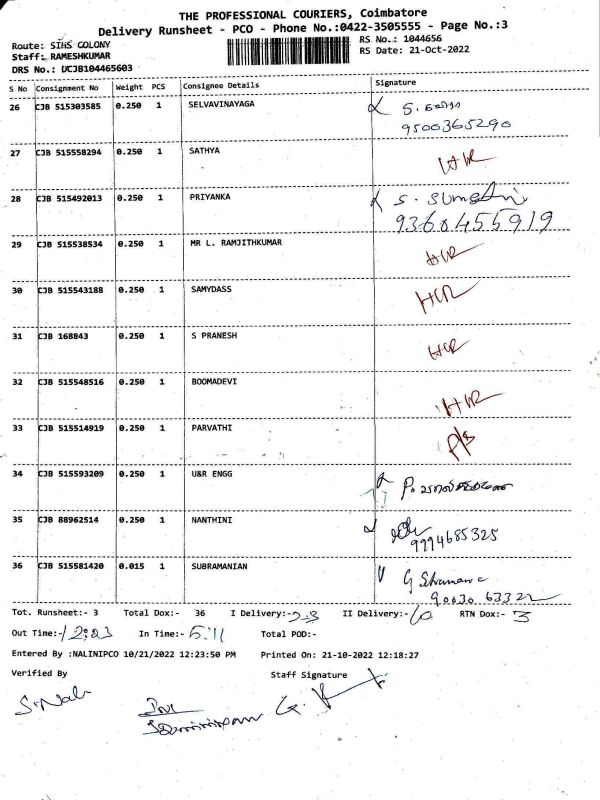 THE PROFESSIONAL COURIERS, Coimbatore
Delivery Runsheet - PCO - Phone No.:0422-3505555 - Page No.:3
Route: SIHS COLONY
RS No.: 1044656
Staff: RAMESHKUMAR
RS Date: 21-Oct-2022
DRS No.: DCJB104465603
S No Consignment No Weight PCS Consignee Details Signature
26 CJB 515303585 0.250 1 SELVAVINAYAGA
9500365290
27 CJB 515558294 0.250 1 SATHYA
28 CJB 515492013 0.250 1 PRIYANKA S. Sumathi
9360455919
29 CJB 515538534 0.250 1 MR L. RAMJITHKUMAR
30 CJB 515543188 0.250 1 SAMYDASS
31 CJB 168843 0.250 1 S PRANESH
32 CJB 515548516 0.250 1 BOOMADEVI
33 CJB 515514919 0.250 1 PARVATHI
34 CJB 515593209 0.250 1 U&R ENGG
35 CJB 88962514 0.250 1 NANTHINI
9994685325
36 CJB 515581420 0.015 1 SUBRAMANIAN
Tot. Runsheet:- 3 Total Dox:- 36 I Delivery:- 23 II Delivery:- RTN Dox:- 3
Out Time:- In Time:- 5.11 Total POD:-
Entered By :NALINIPCO 10/21/2022 12:23:50 PM Printed On: 21-10-2022 12:18:27
Verified By Staff Signature